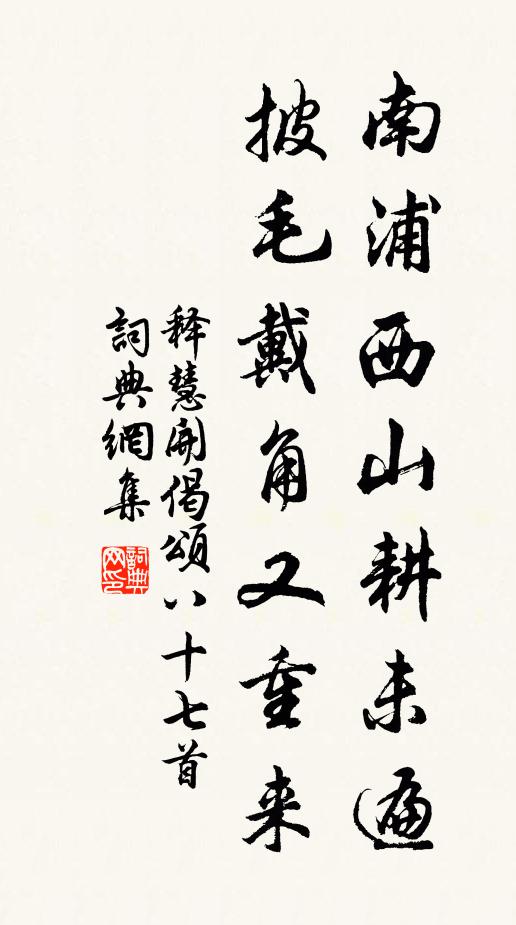 南浦西山耕未遍
披毛戴角又重来
释慧開偈頌八十七首
詞典網集
詞典网印